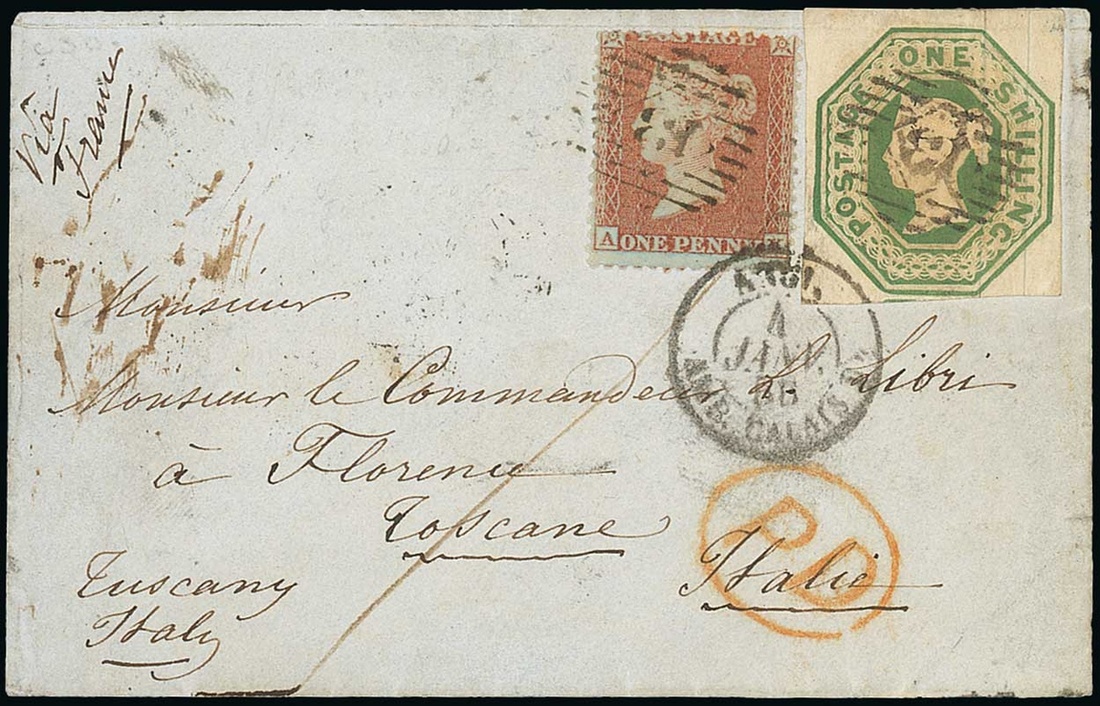 Via
France
POSTAGE
A ONE PENNY
POSTAGE ONE SHILLING
ANGL.
4
JANV.
AMB. CALAIS
PD
Monsieur
Monsieur le Commandeur L. Libri
à Florence
Toscane
Italie
Tuscany
Italy